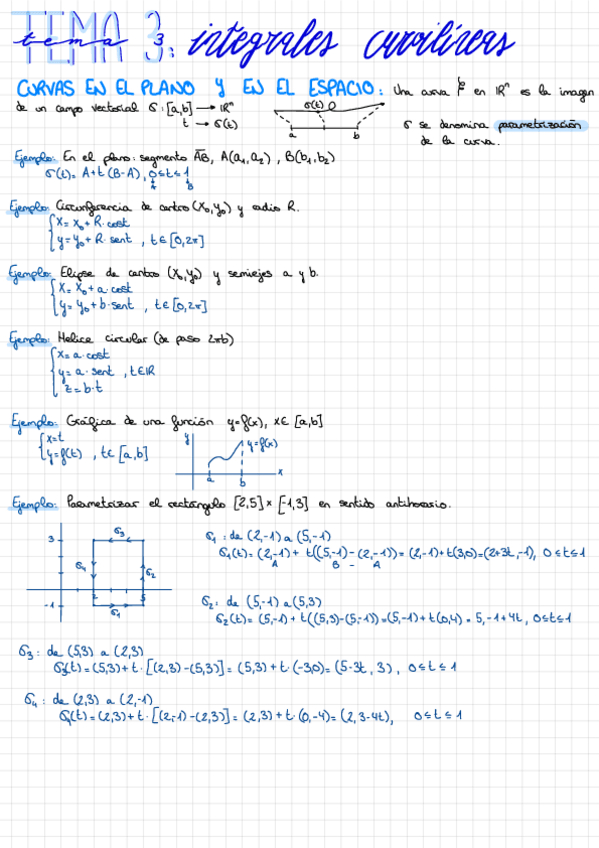 TEMA 3: integrales curvilíneas
tema
CURVAS EN EL PLANO Y EN EL ESPACIO: Una curva 𝒞 en IRⁿ es la imagen
de un campo vectorial σ: [a,b] → IRⁿ
t → σ(t)
σ(t)
a b
σ se denomina parametrización
de la curva.
Ejemplo: En el plano: segmento AB, A(a₁,a₂), B(b₁,b₂)
σ(t)= A+t(B-A), 0≤t≤1
A B
Ejemplo: Circunferencia de centro (x₀,y₀) y radio R.
x= x₀+ R·cost
y= y₀+ R·sent, t∈[0,2π]
Ejemplo: Elipse de centro (x₀,y₀) y semiejes a y b.
x= x₀+a·cost
y= y₀+b·sent, t∈[0,2π]
Ejemplo: Helice circular (de paso 2πb)
x=a·cost
y=a·sent, t∈IR
z=b·t
Ejemplo: Gráfica de una función y=f(x), x∈[a,b]
x=t
y=f(t), t∈[a,b]
y y=f(x)
a b x
Ejemplo: Parametrizar el rectángulo [2,5]×[-1,3] en sentido antihorario.
3 σ₃
σ₄ σ₂
2 5
-1 σ₁
σ₁: de (2,-1) a (5,-1)
σ₁(t)= (2,-1)+ t((5,-1)-(2,-1))= (2,-1)+t(3,0)=(2+3t,-1), 0≤t≤1
A B - A
σ₂: de (5,-1) a (5,3)
σ₂(t)= (5,-1)+t((5,3)-(5,-1))=(5,-1)+t(0,4)= 5,-1+4t, 0≤t≤1
σ₃: de (5,3) a (2,3)
σ₃(t)=(5,3)+t·[(2,3)-(5,3)]= (5,3)+t·(-3,0)= (5-3t, 3), 0≤t≤1
σ₄: de (2,3) a (2,-1)
σ₄(t)= (2,3)+t·[(2,-1)-(2,3)]= (2,3)+t·(0,-4)= (2,3-4t), 0≤t≤1